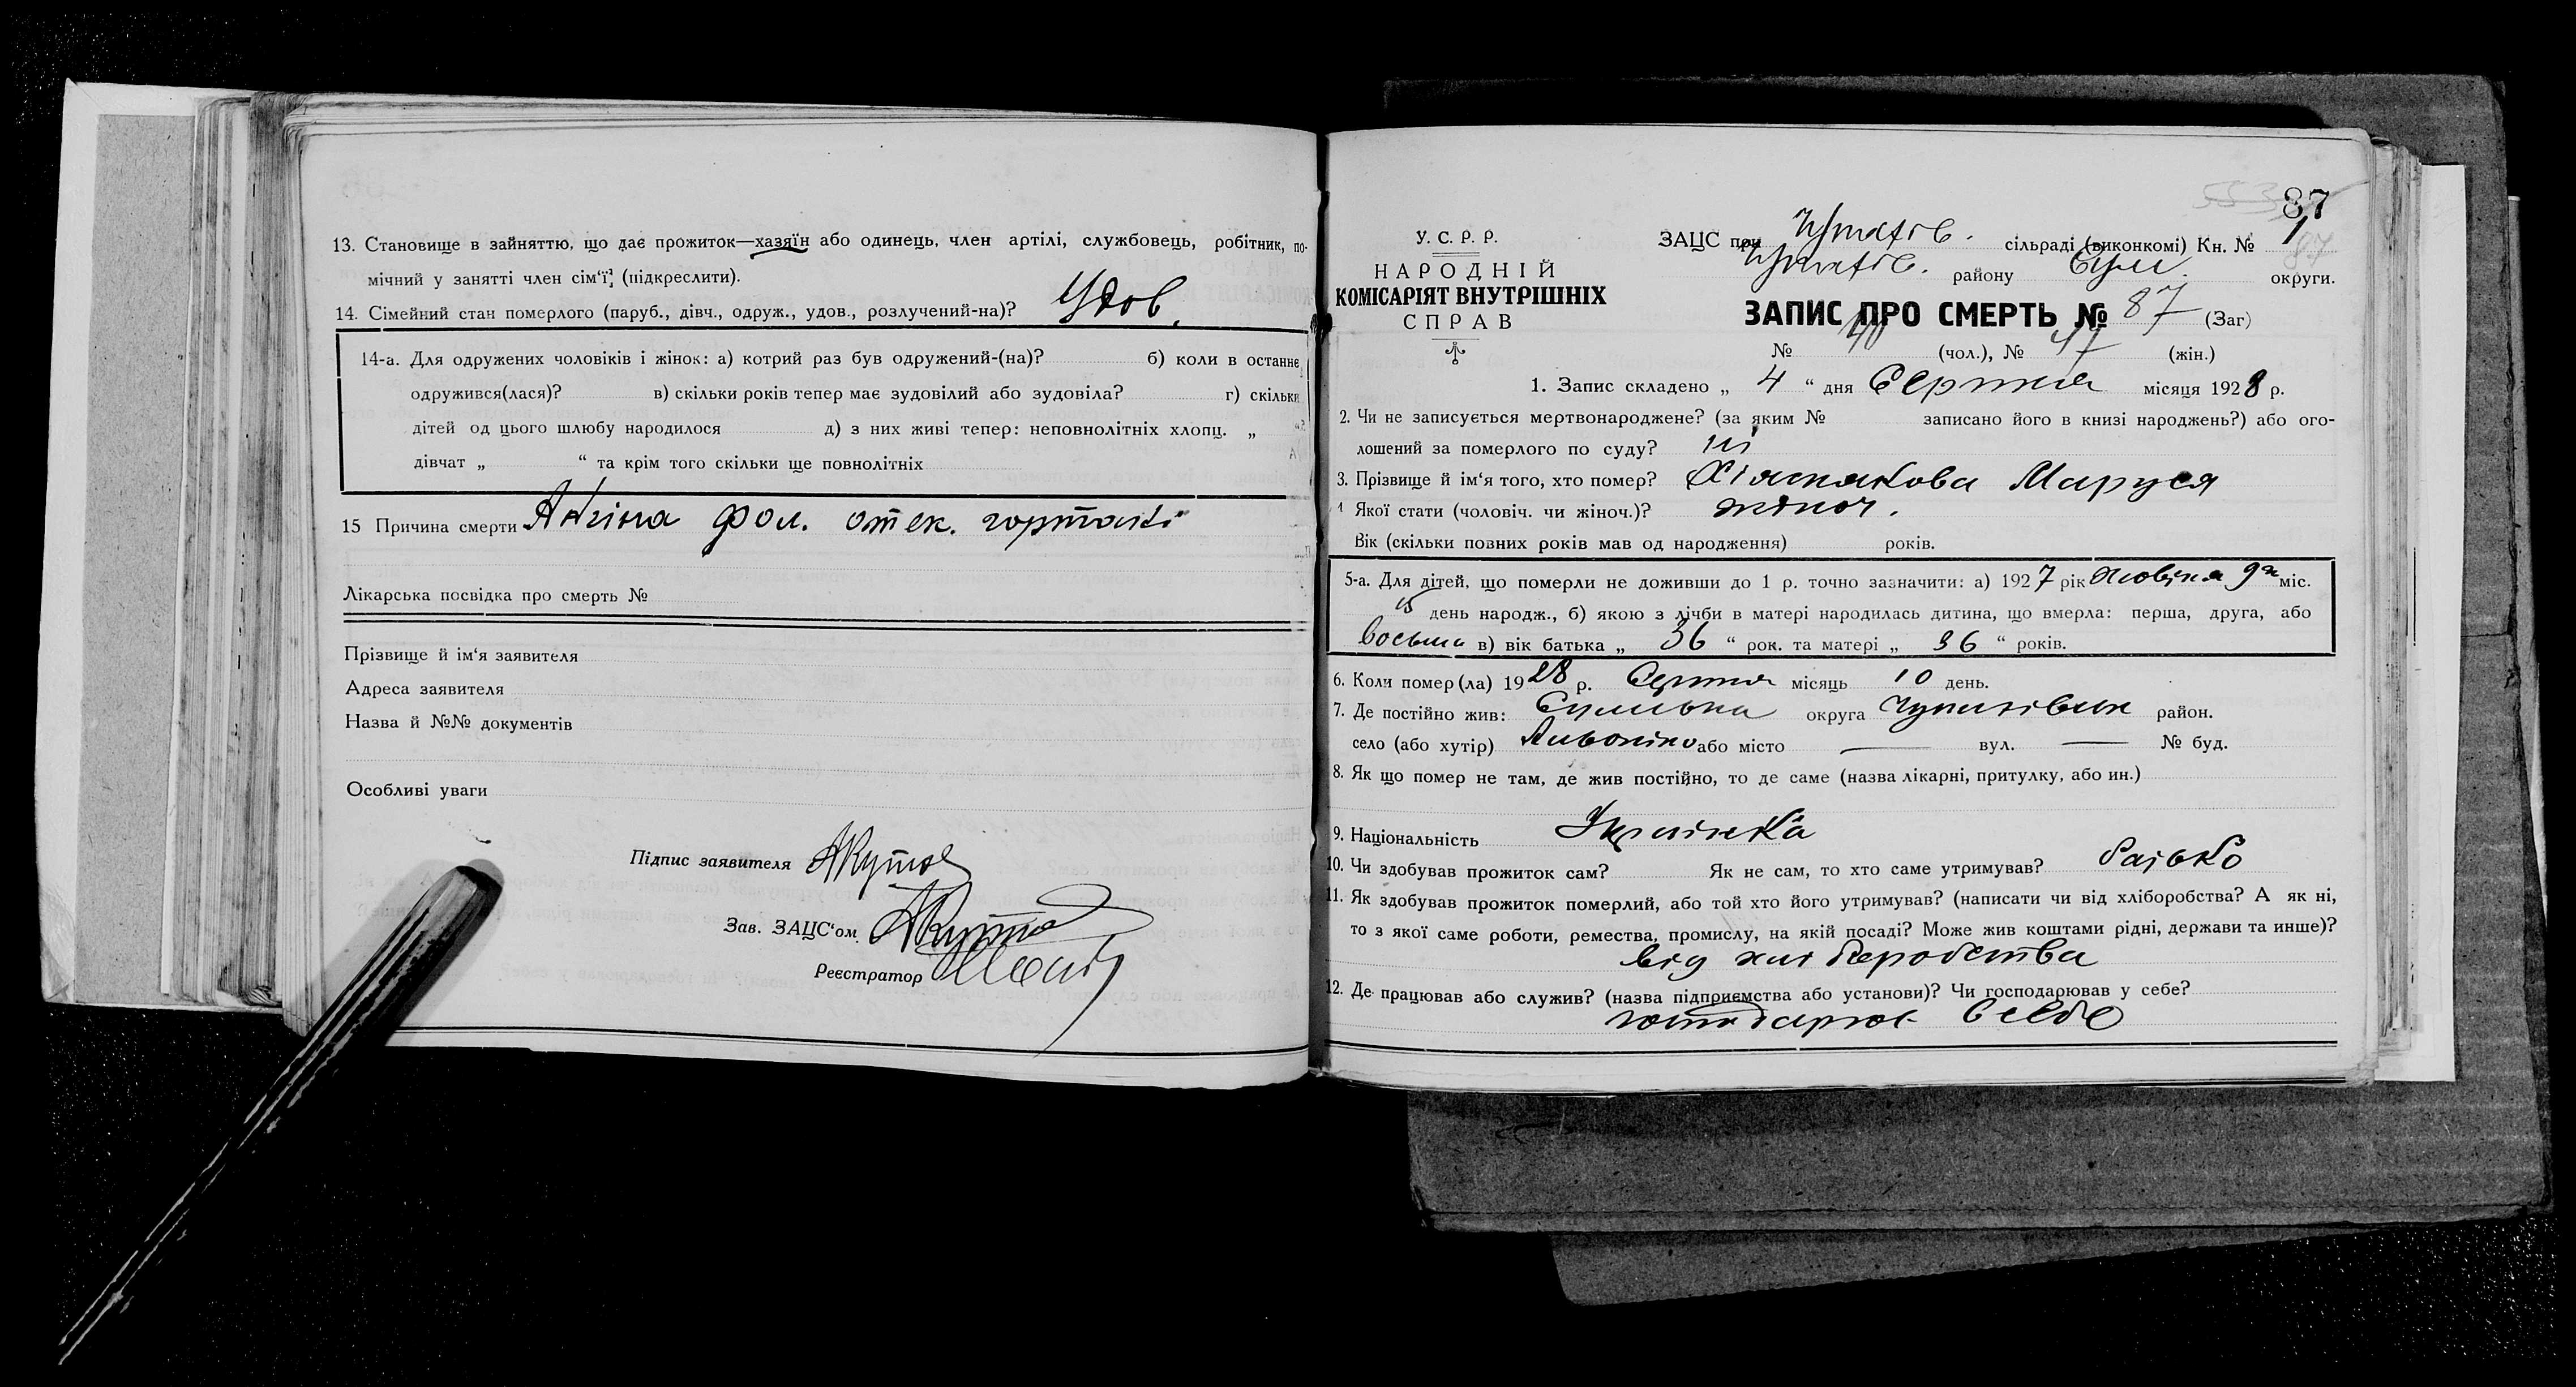 13. Становище в зайняттю, що дає прожиток—хазяїн або одинець, член артілі, службовець, робітник, по-
мічний у занятті член сім'ї, (підкреслити).
14. Сімейний стан померлого (паруб., дівч., одруж., удов., розлучений-на)? Удов.
14-а. Для одружених чоловіків і жінок: а) котрий раз був одружений-(на)? б) коли в останнє
одружився(лася)? в) скільки років тепер має зудовілий або зудовіла? г) скільки
дітей од цього шлюбу народилося д) з них живі тепер: неповнолітніх хлопц. „
дівчат „ “ та крім того скільки ще повнолітніх
15 Причина смерти Ангіна фол. отек. гортані
Лікарська посвідка про смерть №
Прізвище й ім'я заявителя
Адреса заявителя
Назва й №№ документів
Особливі уваги
Підпис заявителя
Зав. ЗАЦС'ом
Реєстратор
87
У. С. Р. Р.
НАРОДНІЙ
КОМІСАРІЯТ ВНУТРІШНІХ
СПРАВ
ЗАЦС при сільраді (виконкомі) Кн. № 1
району Сум. округи.
ЗАПИС ПРО СМЕРТЬ № 87 (Заг)
№ 40 (чол.), № 47 (жін.)
1. Запис складено „ 4 “ дня Серпня місяця 1928 р.
2. Чи не записується мертвонароджене? (за яким № записано його в книзі народжень?) або ого-
лошений за померлого по суду? ні
3. Прізвище й ім'я того, хто помер? Маруся
Якої стати (чоловіч. чи жіноч.)? жіноч.
Вік (скільки повних років мав од народження) років.
5-а. Для дітей, що померли не доживши до 1 р. точно зазначити: а) 1927 рік міс.
день народж., б) якою з лічби в матері народилась дитина, що вмерла: перша, друга, або
восьма в) вік батька „ 36 “ рок. та матері „ 36 “ років.
6. Коли помер(ла) 1928 р. Серпня місяць 10 день.
7. Де постійно жив: Сумська округа район.
село (або хутір) або місто — вул. — № буд.
8. Як що помер не там, де жив постійно, то де саме (назва лікарні, притулку, або ин.)
9. Національність Українка
10. Чи здобував прожиток сам? Як не сам, то хто саме утримував? батько
11. Як здобував прожиток померлий, або той хто його утримував? (написати чи від хліборобства? А як ні,
то з якої саме роботи, ремества, промислу, на якій посаді? Може жив коштами рідні, держави та инше)?
від хліборобства
12. Де працював або служив? (назва підприємства або установи)? Чи господарював у себе?
господарюв. в себе